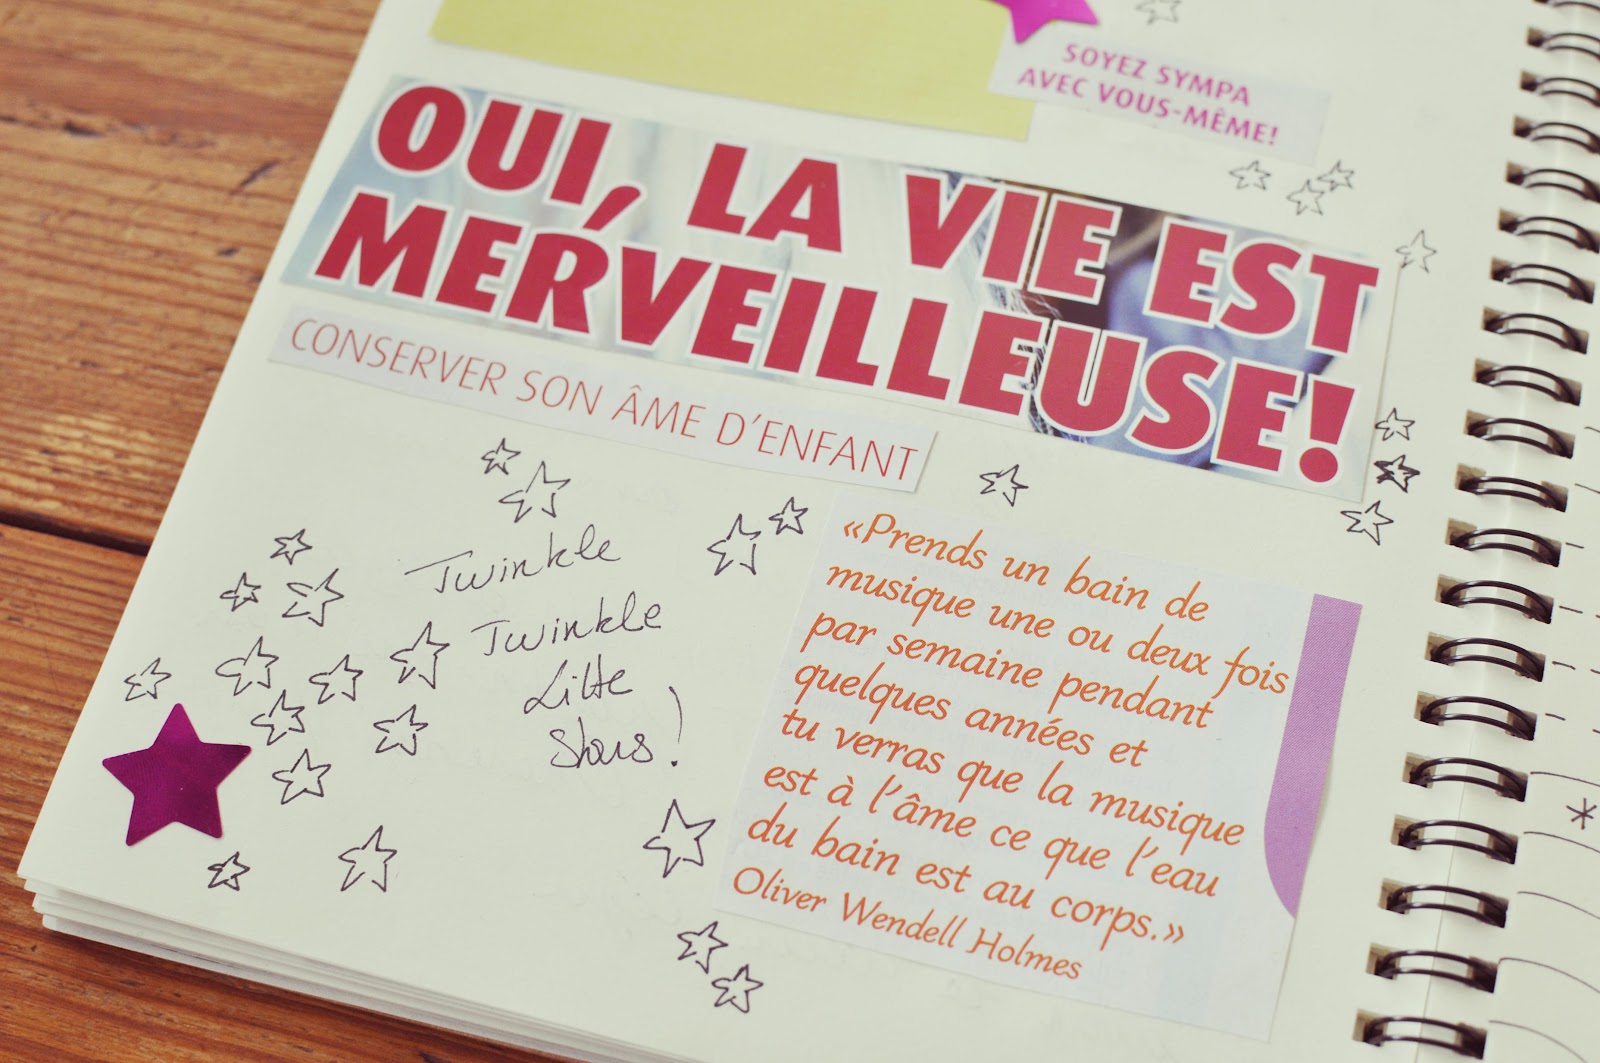 SOYEZ SYMPA
AVEC VOUS-MÊME!
OUI, LA VIE EST
MERVEILLEUSE!
CONSERVER SON ÂME D'ENFANT
Twinkle
Twinkle
Little
Stars!
«Prends un bain de
musique une ou deux fois
par semaine pendant
quelques années et
tu verras que la musique
est à l'âme ce que l'eau
du bain est au corps.»
Oliver Wendell Holmes